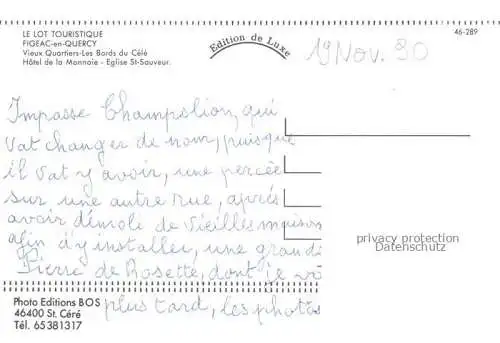 LE LOT TOURISTIQUE
FIGEAC-en-QUERCY
Vieux Quartiers-Les Bords du Célé
Hôtel de la Monnaie - Eglise St-Sauveur.
Edition de Luxe
46-289
19 Nov. 90
Impasse Champolion, qui
vat changer de nom, puisque
il vat y avoir, une percée
sur une autre rue, après
avoir démoli de vieilles maisons
afin d'y installer, une grande
Pierre de Rosette, dont je
plus tard, les photos
privacy protection
Datenschutz
Photo Editions BOS
46400 St. Céré
Tél. 65381317